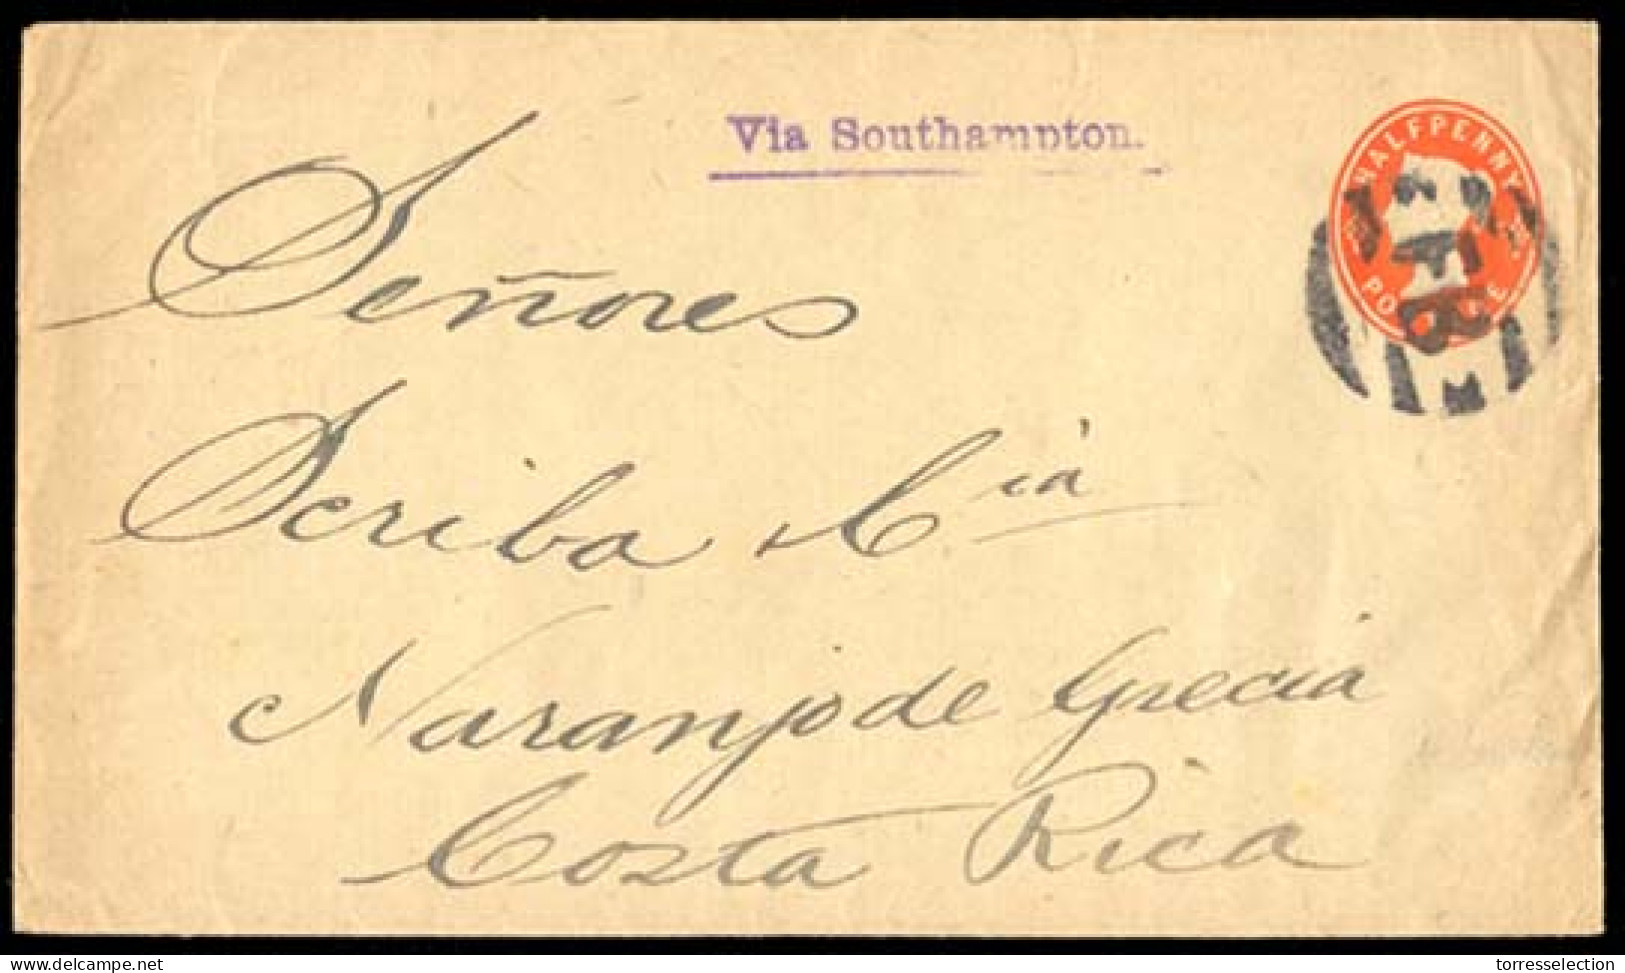 Via Southampton.
HALFPENNY
PO GE
Señores
Scriba & Cia
Naranjo de Grecia
Costa Rica
delcampe.net
torresselection